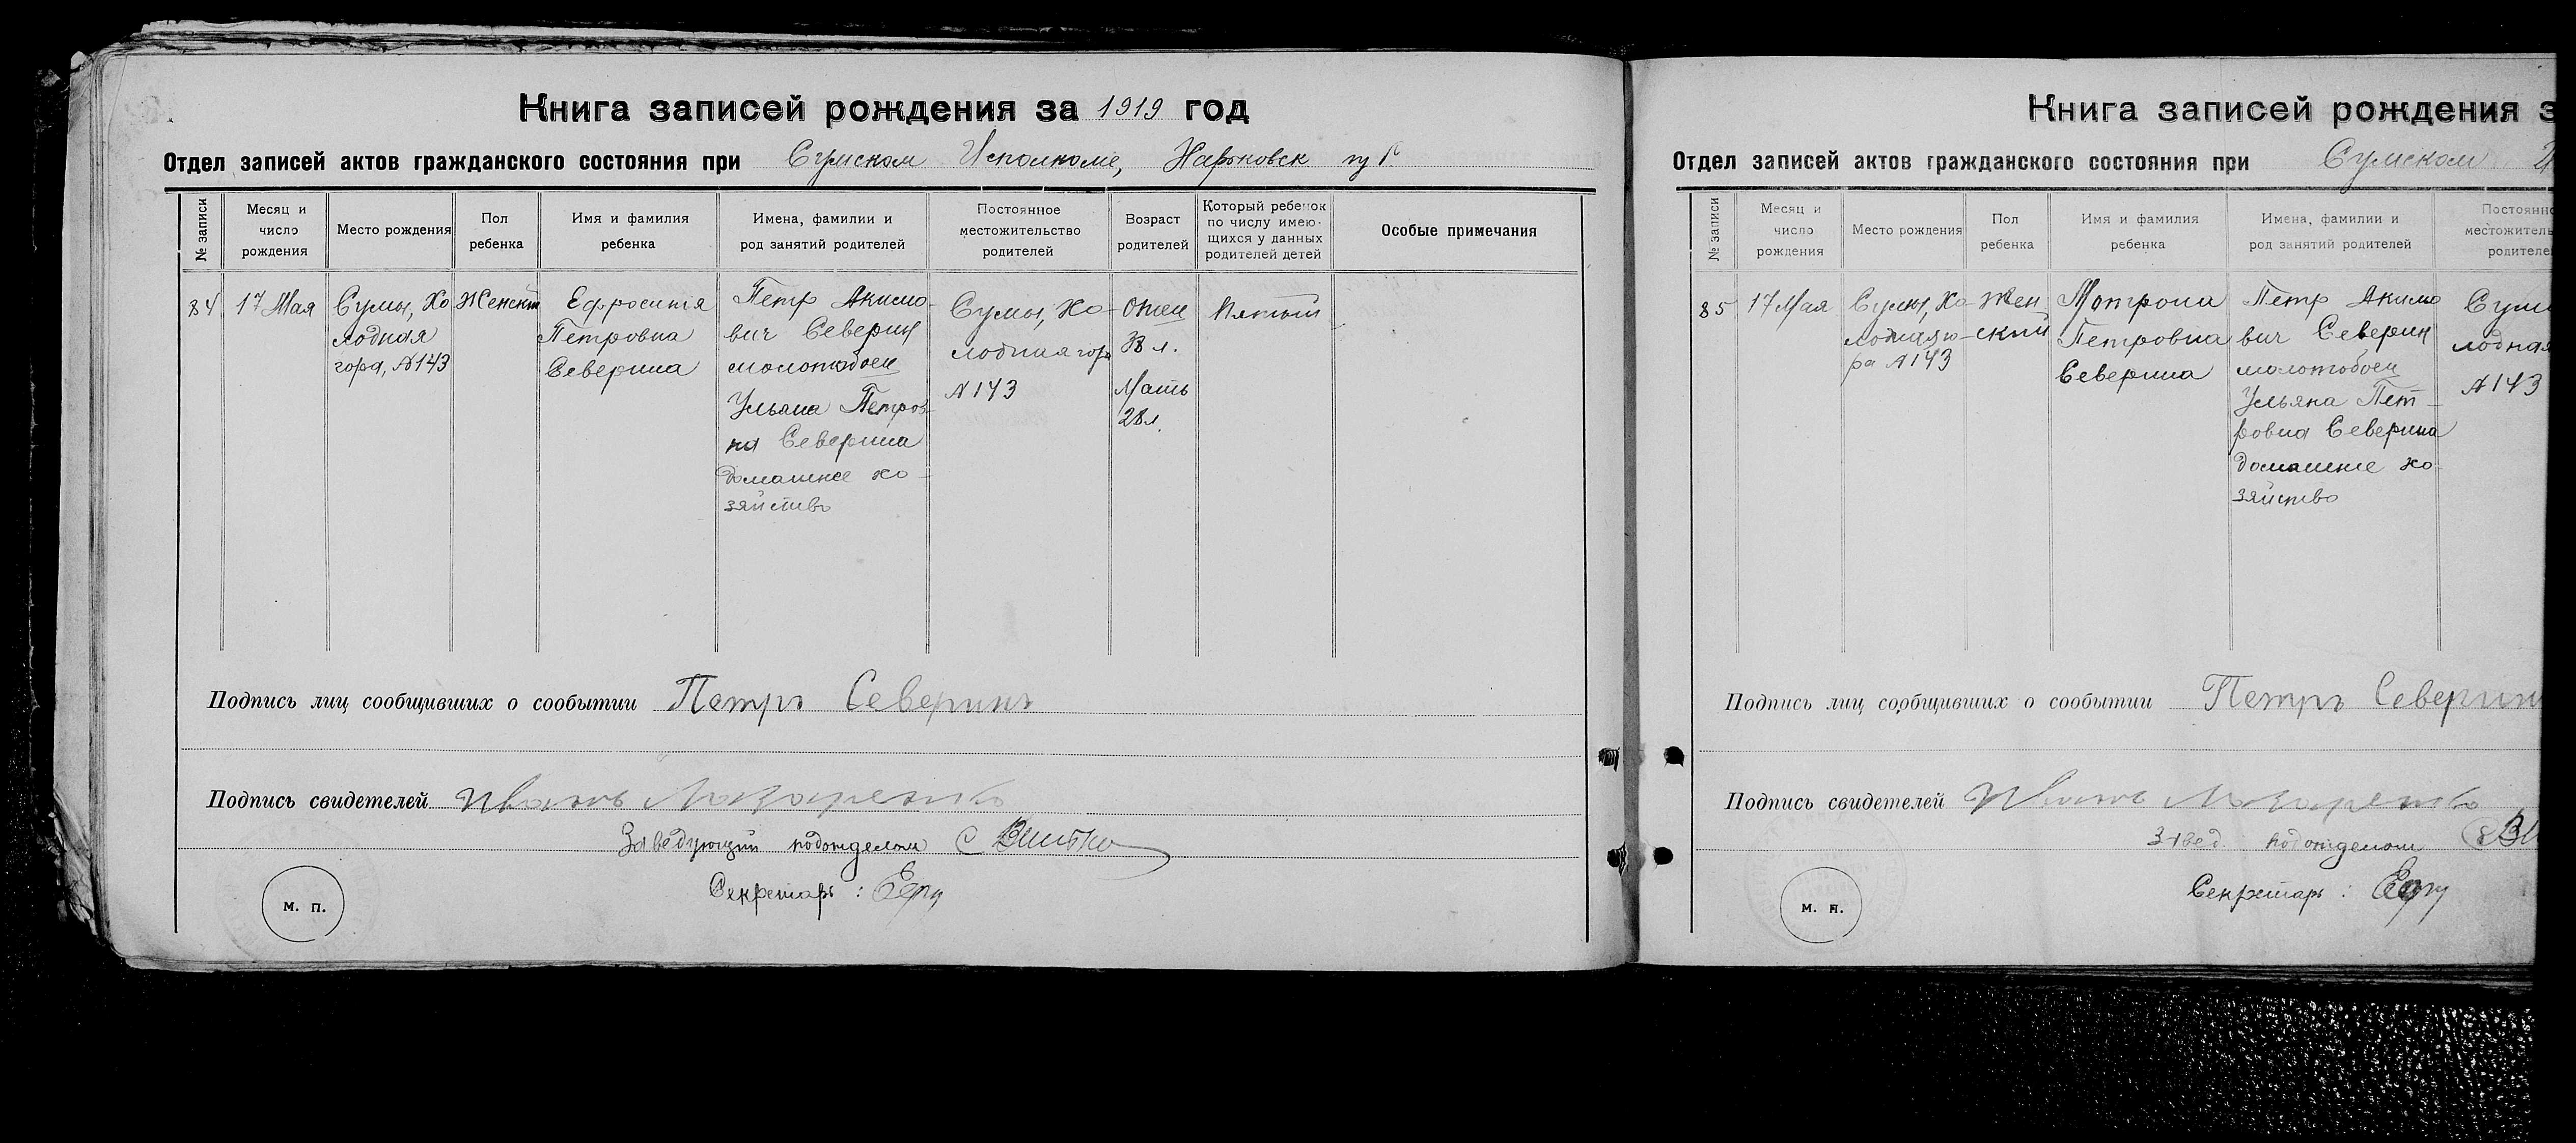 Книга записей рождения за 1919 год
Отдел записей актов гражданского состояния при Сумском Исполкоме, Харьковск губ.
№ записи
Месяц и
число
рождения
Место рождения
Пол
ребенка
Имя и фамилия
ребенка
Имена, фамилии и
род занятий родителей
Постоянное
местожительство
родителей
Возраст
родителей
Который ребенок
по числу имею-
щихся у данных
родителей детей
Особые примечания
84
17 Мая
Сумы, Хо
лодная
гора, №143
Женский
Ефросиния
Петровна
Северина
Петр Акимо-
вич Северин
молотобоец
Ульяна Петров-
на Северина
домашнее хо-
зяйство
Сумы, Хо-
лодная гора
№143
Отец
38 л.
Мать
28 л.
Пятый
Подпись лиц сообщивших о сообытии Петръ Северинъ
Подпись свидетелей Иванъ Назаренко
Заведующий подотделом
Секретарь :
м. п.
Книга записей рождения з
Отдел записей актов гражданского состояния при Сумском
№ записи
Месяц и
число
рождения
Место рождения
Пол
ребенка
Имя и фамилия
ребенка
Имена, фамилии и
род занятий родителей
Постоянно
местожитель
родителе
85
17 Мая
Сумы, Хо
лодная го-
ра №143
Жен
ский
Мотрона
Петровна
Северина
Петр Акимо
вич Северин
молотобоец
Ульяна Пет-
ровна Северина
домашнее хо-
зяйство
Сум
лодная
№143
Подпись лиц сообщивших о сообытии Петръ Северин
Подпись свидетелей Иванъ Назаренко
Завед. подотделом
Секретарь :
м. п.